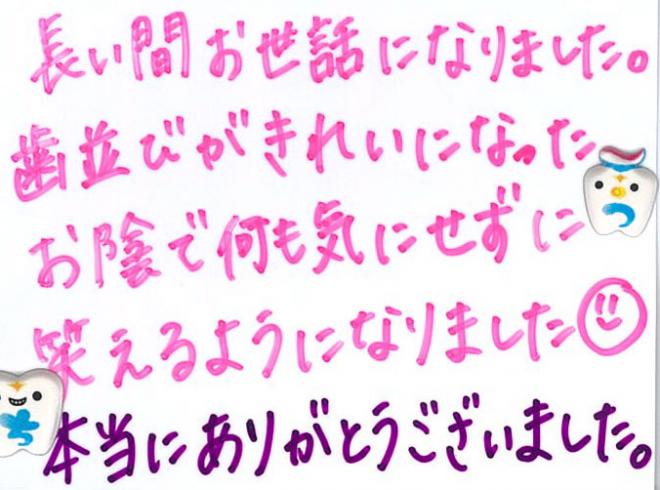 長い間お世話になりました。
歯並びがきれいになった
お陰で何も気にせずに
笑えるようになりました
本当にありがとうございました。